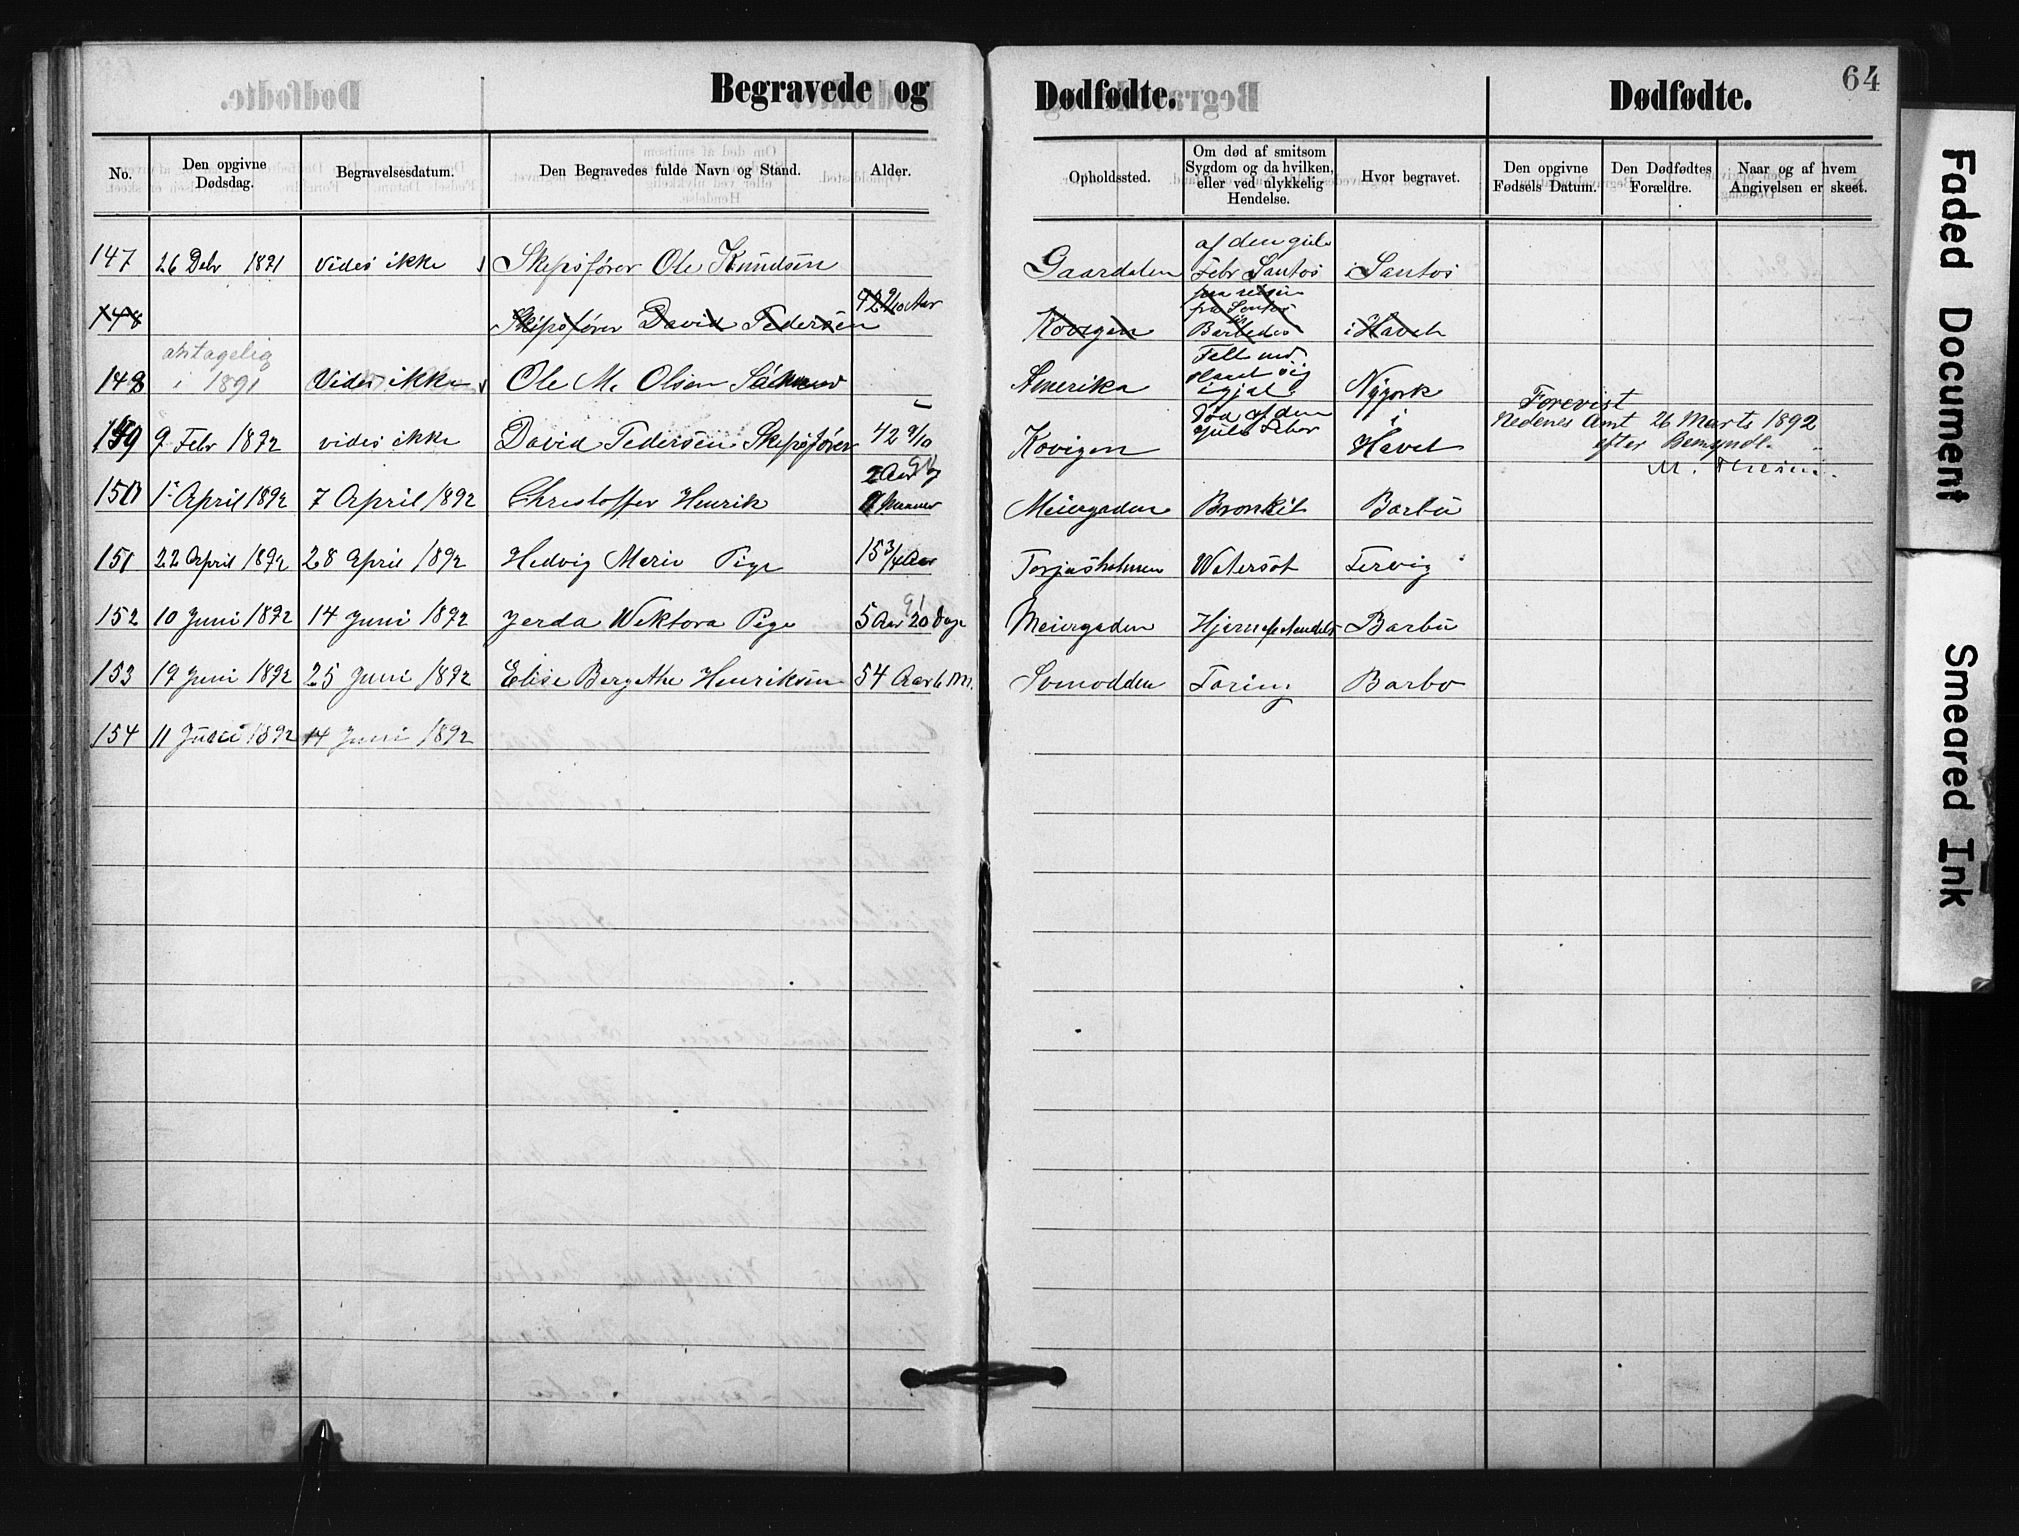 64
Begravede og Dødfødte. Dødfødte.
No. Den opgivne Dødsdag. Begravelsesdatum. Den Begravedes fulde Navn og Stand. Alder. Opholdssted. Om død af smitsom Sygdom og da hvilken, eller ved ulykkelig Hendelse. Hvor begravet. Den opgivne Fødsels Datum. Den Dødfødtes Forældre. Naar og af hvem Angivelsen er skeet.
147 26 Debr 1891 Vides ikke Skipsfører Ole Knudsen Gaardalen af den gule Febr Santos i Santos
148 Skipsfører David Pedersen 42 9/10 Aar Kovigen paa reisen fra Santos til Barbedos i Havet
148 antagelig i 1891 Vides ikke Ole M. Olsen Amerika Nyyork
149 9 Febr 1892 vides ikke David Pedersen Skipsfører 42 9/10 Kovigen Død af den gule Feber i Havet
Forevist
Nedenes Amt 26 Marts 1892
efter Bemyndl.
150 1 April 1892 7 April 1892 Christoffer Henrik 2 Aar og Meiergaden Bronkit Barbu
151 22 April 1892 28 April 1892 Hedvig Marie Pige 15 3/4 Aar Torjusholmen Watersot Tervig
152 10 Juni 1892 14 Juni 1892 Jerda Wektora Pige 5 Aar 20 Dage Meiergaden Barbu
153 19 Juni 1892 25 Juni 1892 Elise Bergethe Henriksen 54 Aar 6 M. Somodden Tæring Barbo
154 11 Juni 1892 14 Juni 1892
Faded Document
Smeared Ink